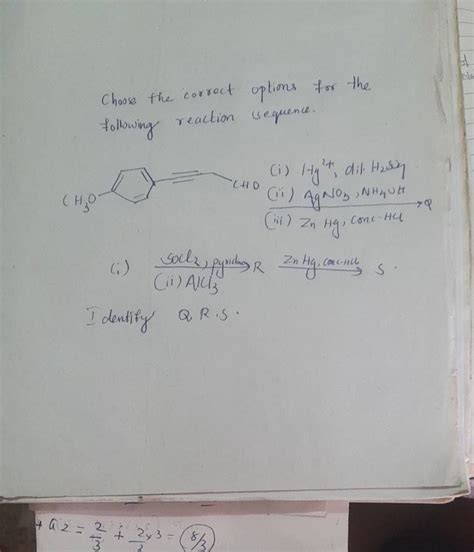 Choose the correct options for the
following reaction sequence.
CH3O
CHO
(i) Hg2+, dil H2SO4
(ii) AgNO3, NH4OH
(iii) Zn Hg, conc-HCl
Q
(i) SOCl2, pyridine
(ii) AlCl3
R
Zn Hg, conc-HCl
S.
Identify Q R.S.
a2 = 2/3 + 2/3 x 3 = 8/3